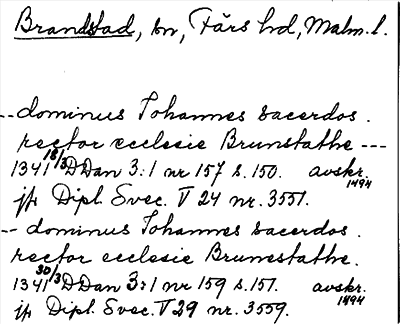 Brandstad, sn, Färs hd, Malm. l.
-- dominus Johannes sacerdos.
rector ecclesie Brunstathe ---
1341 18/3 DDan 3:1 nr 157 s. 150. avskr. 1494
jfr Dipl. Svec. V 24 nr. 3551.
-- dominus Johannes sacerdos.
rector ecclesie Brunestathe.
1341 30/3 DDan 3:1 nr 159 s. 151. avskr. 1494
jfr Dipl. Svec. V 29 nr. 3559.